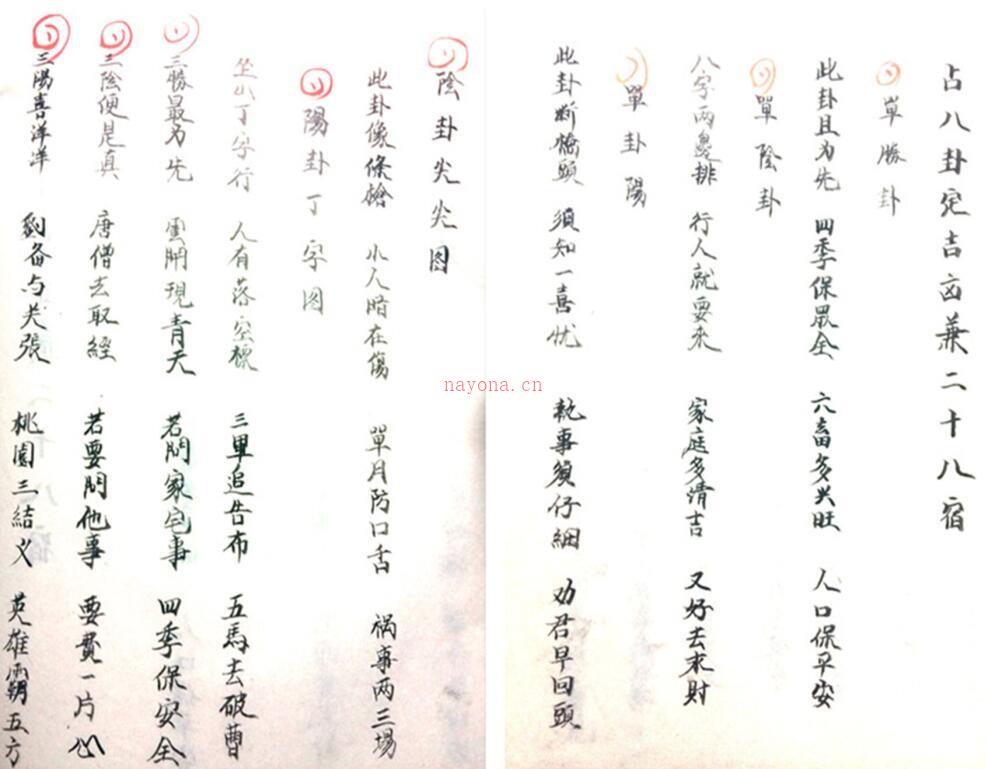 占八卦定吉凶兼二十八宿
單勝卦
此卦且为先 四季保眾全 六畜多兴旺 人口保平安
單陰卦
八字兩邊排 行人就要來 家庭多清吉 又好去求財
單卦陽
此卦断橋頭 須知一喜忧 執事須仔細 劝君早回頭
陰卦尖尖图
此卦像條鎗 小人暗在傷 單月防口舌 禍事两三場
陽卦丁字图
坐山丁字行 人有落空 三里追告布 五馬去破曹
三勝最为先 雲開現青天 若問家宅事 四季保安全
三陰便是真 唐僧去取經 若要問他事 要費一片心
三陽喜洋洋 劉备与关張 桃園三結义 英雄霸五方
nayona.cn